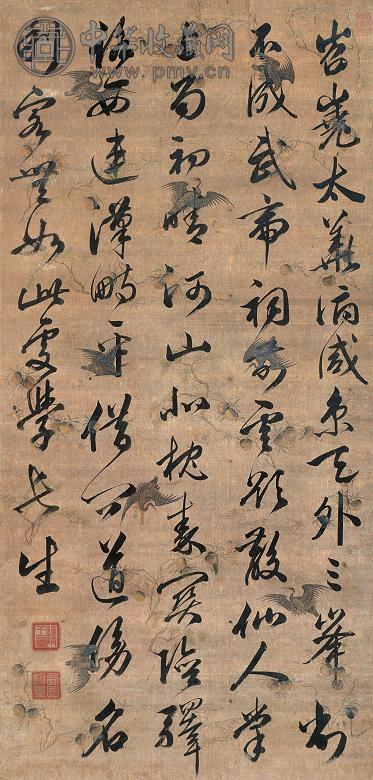 中华收藏网
www.pmyv.cn
岧嶤太華俯咸京天外三峯削
不成武帝祠前雲欲散仙人掌
上雨初晴河山北枕秦關險驛
路西連漢畤平借問道傍名
利客無如此處學長生